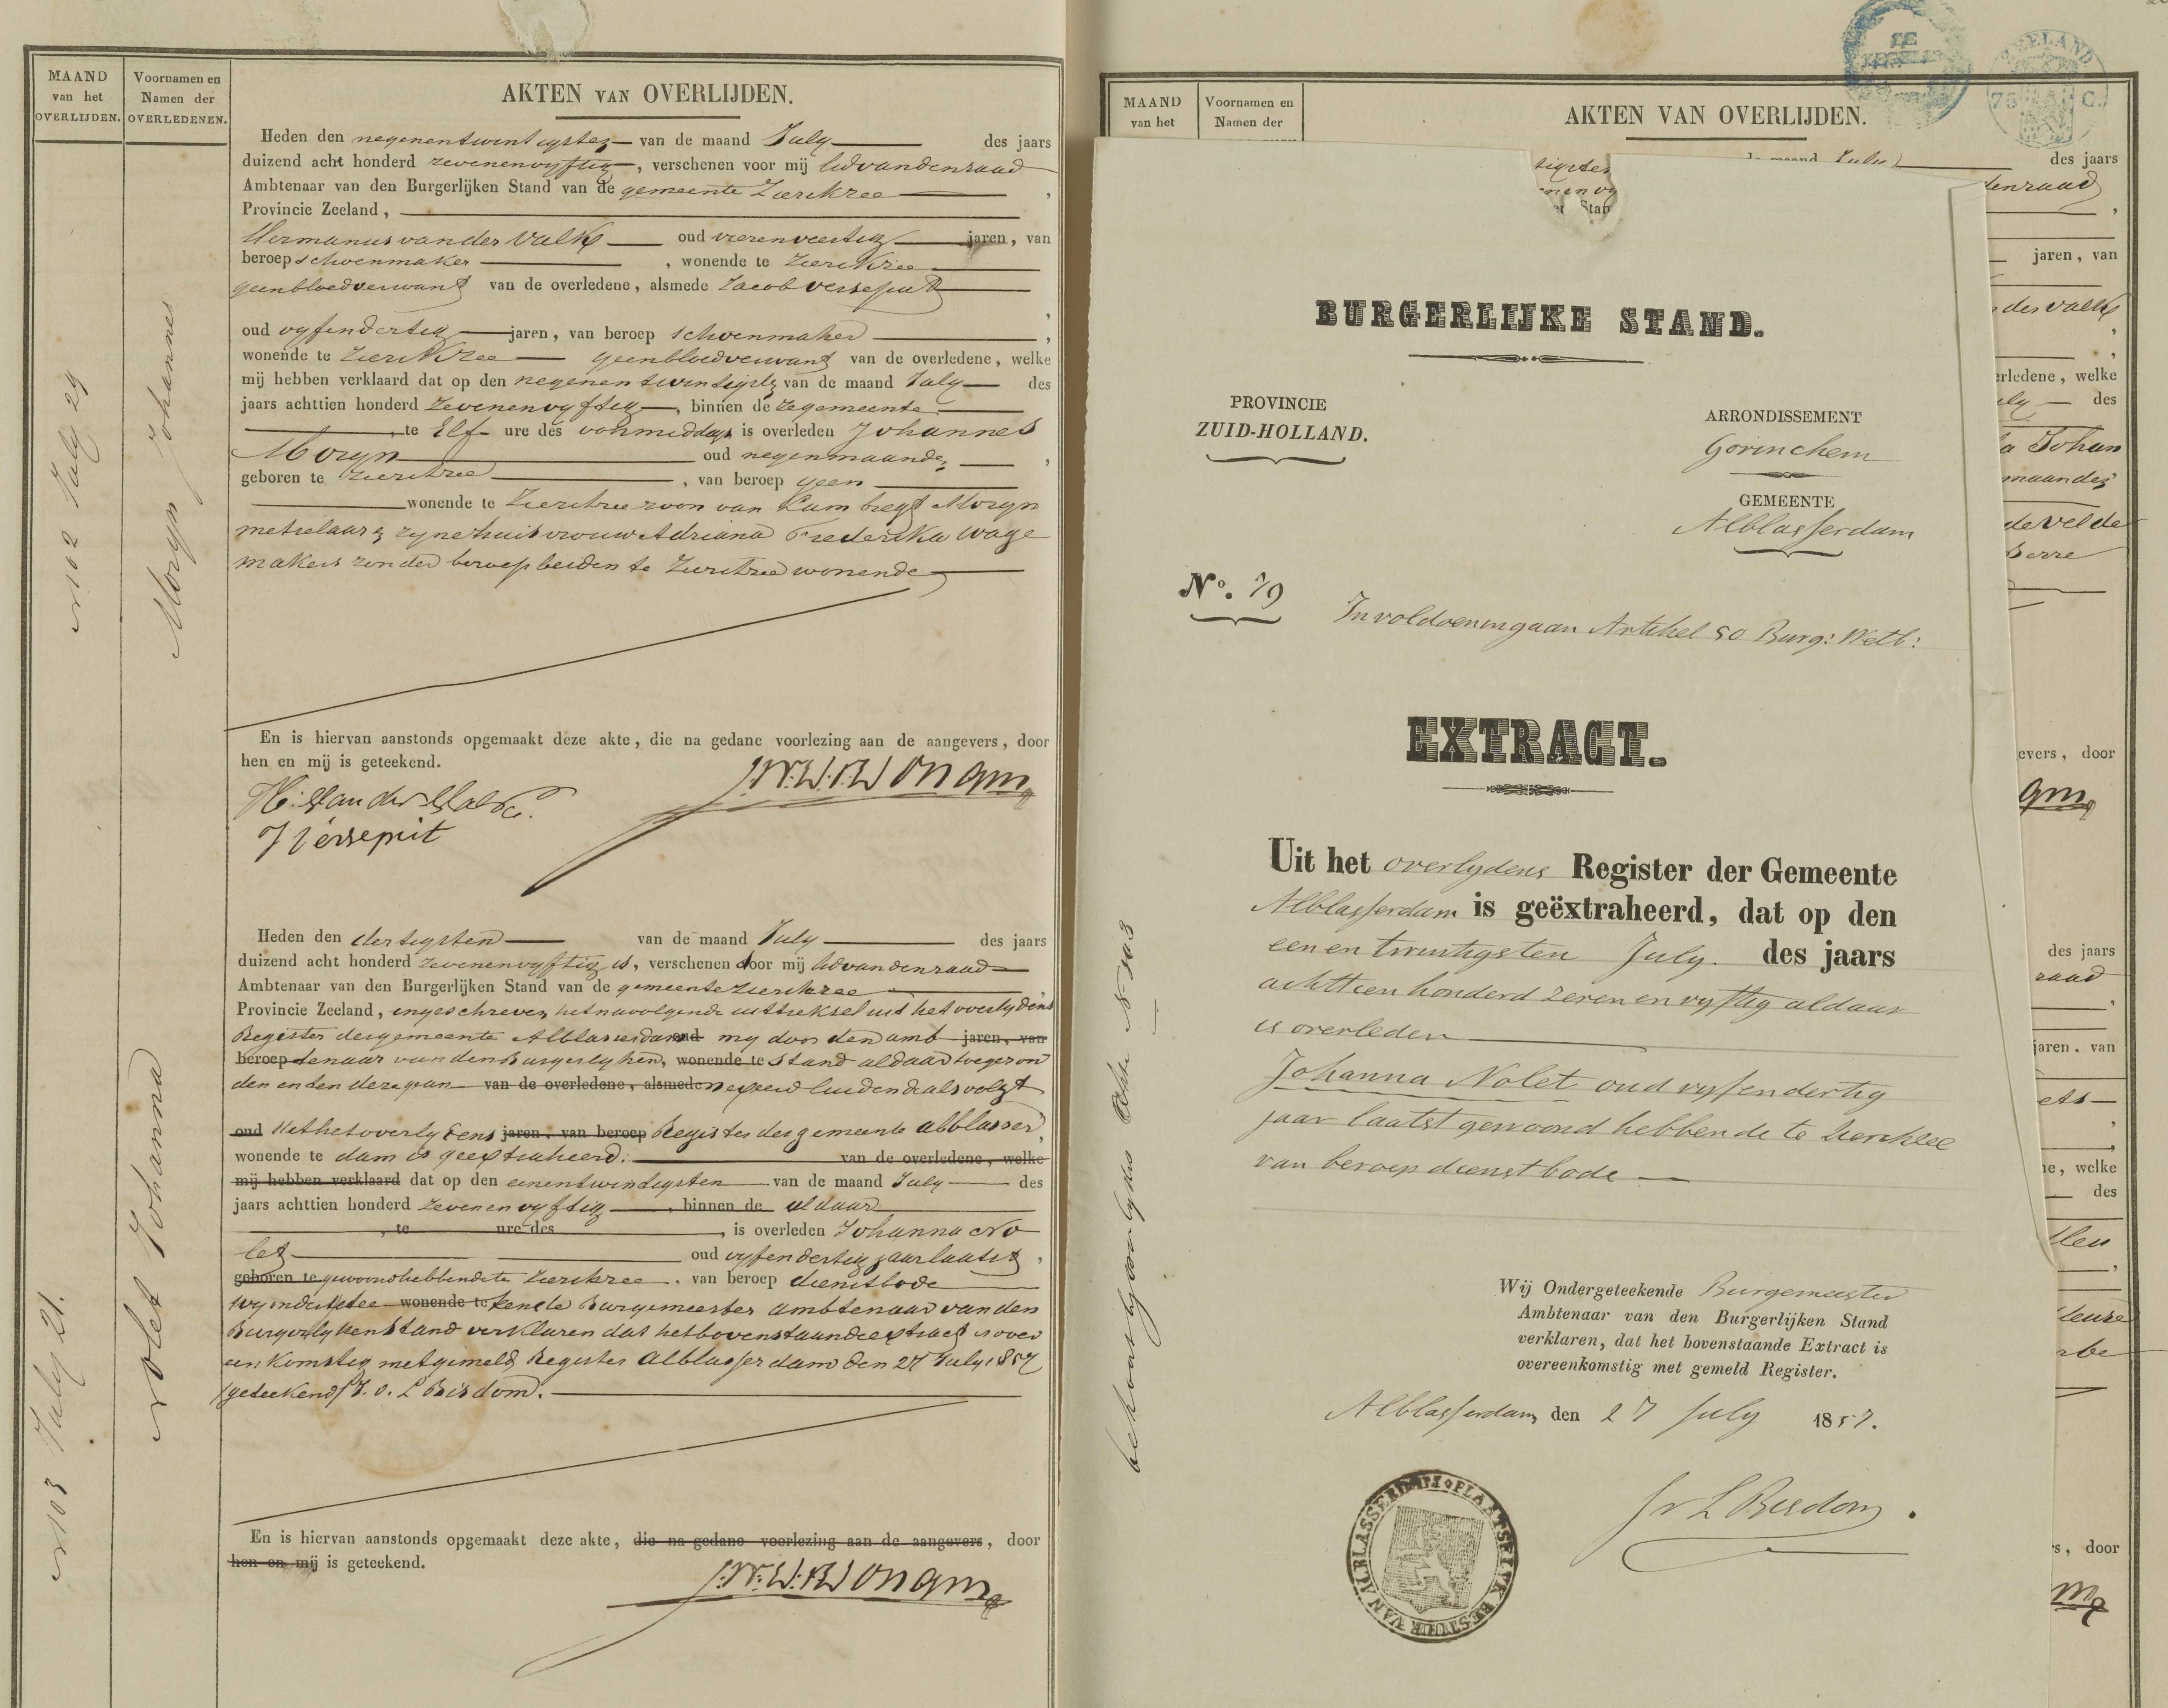 MAAND
van het
OVERLIJDEN.
Voornamen en
Namen der
OVERLEDENEN.
AKTEN VAN OVERLIJDEN.
No 102 July 29
Moryn Johannes
Heden den negenentwintigsten van de maand July des jaars
duizend acht honderd zevenenvyftig, verschenen voor mij lid van den raad
Ambtenaar van den Burgerlijken Stand van de gemeente Zierikzee,
Provincie Zeeland,
Hermanus van der Valk oud vierenveertig jaren, van
beroep schoenmaker, wonende te Zierikzee
geen bloedverwant van de overledene, alsmede Jacob Verseput,
oud vyfendertig jaren, van beroep schoenmaker,
wonende te Zierikzee geen bloedverwant van de overledene, welke
mij hebben verklaard dat op den negenentwintigste van de maand July des
jaars achttien honderd zevenenvyftig, binnen deze gemeente
, te Elf ure des voormiddags is overleden Johannes
Moryn oud negen maanden,
geboren te Zierikzee, van beroep geen
wonende te Zierikzee zoon van Lambregt Moryn
metselaar & zyne huisvrouw Adriana Frederika Wage
makers zonder beroep beiden te Zierikzee wonende
En is hiervan aanstonds opgemaakt deze akte, die na gedane voorlezing aan de aangevers, door
hen en mij is geteekend.
H. Van der Valk
J Verseput
No 103 July 21.
Nolet Johanna
Heden den dertigsten van de maand July des jaars
duizend acht honderd zevenenvyftig is, verschenen door mij lid van den raad
Ambtenaar van den Burgerlijken Stand van de gemeente Zierikzee
Provincie Zeeland, ingeschreven het navolgende uittreksel uit het overlydens
Register der gemeente Alblasserdam my door den amb jaren, van
beroep tenaar van den Burgerlyken, wonende te Stand aldaar toegezon
den en ten dezen van de overledene, alsmede luidende als volgt
oud Uit het overlydens jaren, van beroep Register der gemeente Alblasser,
wonende te dam is geextraheerd: van de overledene, welke
mij hebben verklaard dat op den eenentwintigsten van de maand July des
jaars achttien honderd zevenenvyftig, binnen de aldaar
, te ure des, is overleden Johanna No
let oud vyfendertig jaar laatst,
geboren te gewoond hebbende te Zierikzee, van beroep dienstbode
Wy ondergetee wonende te kende Burgemeester Ambtenaar van den
Burgerlyken Stand verklaren dat het bovenstaande extract is over
eenkomstig met gemeld Register Alblasserdam den 27 July 1857
(geteekend) L Bisdom.
En is hiervan aanstonds opgemaakt deze akte, die na gedane voorlezing aan de aangevers, door
hen en mij is geteekend.
MAAND
van het
Voornamen en
Namen der
AKTEN VAN OVERLIJDEN.
ZEELAND
75 C.
de maand July des jaars
jaren, van
der Valk
erledene, welke
des
a Johan
maanden
de Velde
evers, door
des jaars
raad
jaren, van
ne, welke
des
s, door
BURGERLIJKE STAND.
PROVINCIE
ZUID-HOLLAND.
ARRONDISSEMENT
Gorinchem
GEMEENTE
Alblasserdam
No. 79
In voldoening aan Artikel 50 Burg: Wetb:
EXTRACT.
Uit het overlydens Register der Gemeente
Alblasserdam is geëxtraheerd, dat op den
een en twintigsten July des jaars
achttien honderd zeven en vyftig aldaar
is overleden
Johanna Nolet oud vyf en dertig
jaar laatst gewoond hebbende te Zierikzee
van beroep dienstbode
Wij Ondergeteekende Burgemeester
Ambtenaar van den Burgerlijken Stand
verklaren, dat het bovenstaande Extract is
overeenkomstig met gemeld Register.
Alblasserdam, den 27 July 1857.
L Bisdom
PLAATSELIJK BESTUUR VAN ALBLASSERDAM
behoort by overlydens Akte N 103